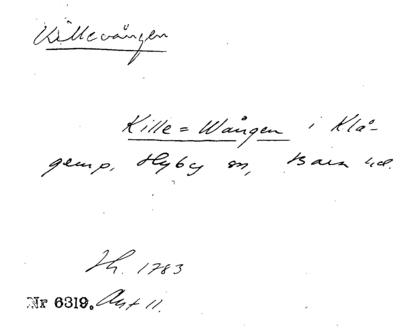 Killevången
Kille=Wången i Klå-
gerup, Hyby sn, Bara hd.
Th. 1783
Nr 6319. Akt 11.